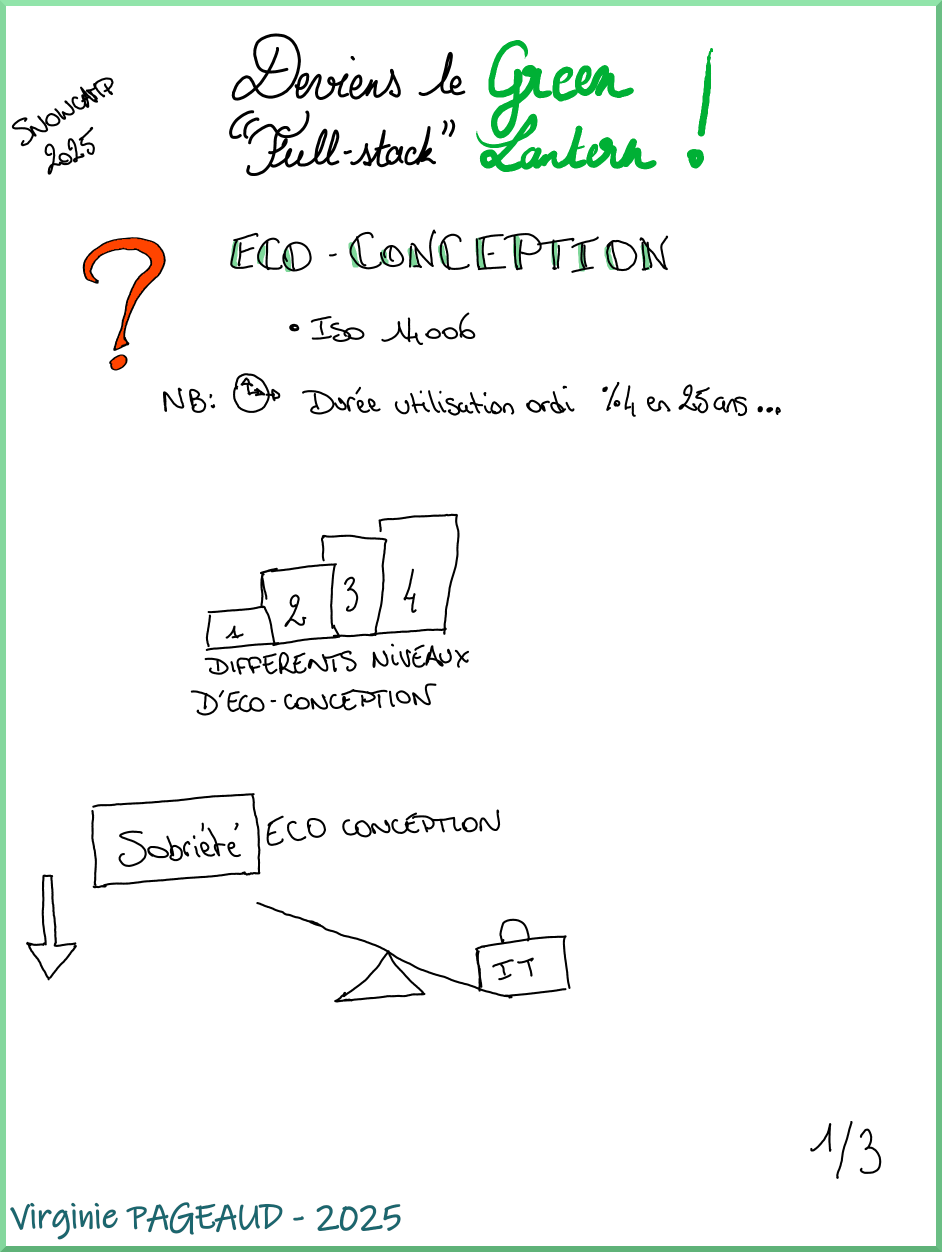 SNOWCAMP
2025
Deviens le Green
"Full-stack" Lantern !
?
ECO-CONCEPTION
• ISO 14006
NB: Durée utilisation ordi %4 en 25 ans...
1 2 3 4
DIFFERENTS NIVEAUX
D'ECO-CONCEPTION
Sobriété ECO CONCEPTION
IT
1/3
Virginie PAGEAUD - 2025